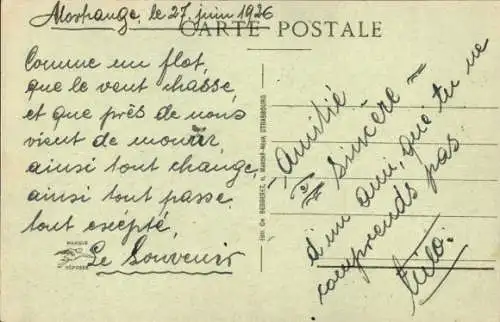 Morhange, le 27 juin 1926
CARTE POSTALE
Comme un flot,
que le vent chasse,
et que près de nous
vient de mourir,
ainsi tout change,
ainsi tout passe,
tout exépté,
Le Souvenir
MARQUE
DÉPOSÉE
STRASBOURG
Amitié
Sincère
d'un ami, que tu ne
comprends pas.